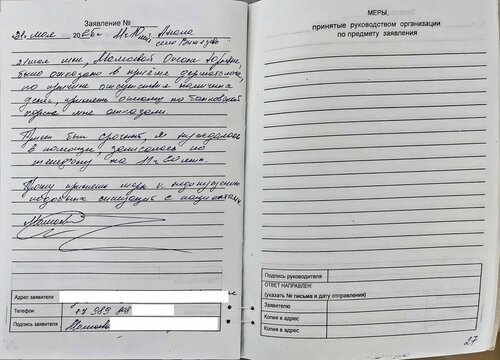 Заявление №
21 мая
21 мая мне,
было отказано в приёме дерматолога,
по причине отсутствия наличных
денег, принять оплату по банковской
карте мне отказали.
Приём был срочный, я нуждалась
в помощи, записалась по
телефону на
Прошу принять меры к недопущению
подобных ситуаций с пациентами.
Адрес заявителя
Телефон
Подпись заявителя
МЕРЫ,
принятые руководством организации
по предмету заявления
Подпись руководителя
ОТВЕТ НАПРАВЛЕН:
(указать № письма и дату отправления)
Заявителю
Копия в адрес
Копия в адрес
27